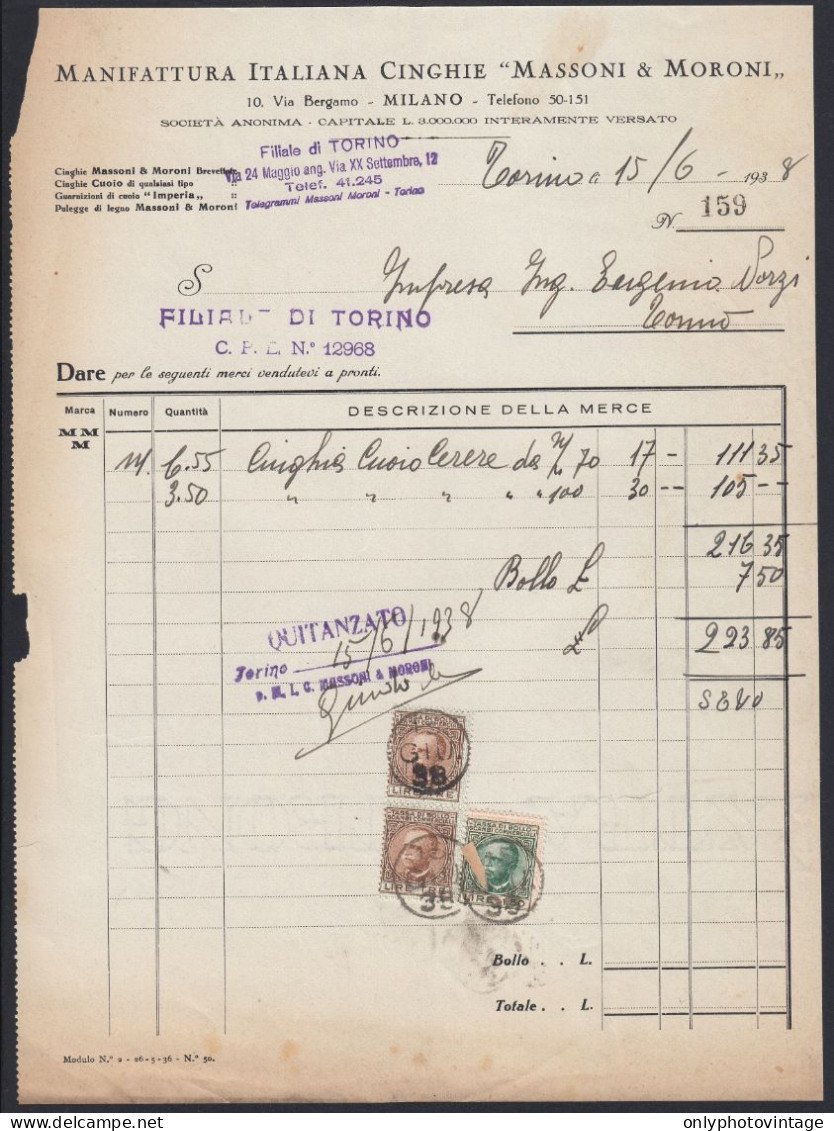 MANIFATTURA ITALIANA CINGHIE "MASSONI & MORONI„
10. Via Bergamo - MILANO - Telefono 50-151
SOCIETÀ ANONIMA - CAPITALE L. 3.000.000 INTERAMENTE VERSATO
Filiale di TORINO
Via 24 Maggio ang. Via XX Settembre, 12
Telef. 41.245
Telegrammi Massoni Moroni - Torino
Cinghie Massoni & Moroni Brevettate
Cinghie Cuoio di qualsiasi tipo "
Guarnizioni di cuoio "Imperia„ "
Pulegge di legno Massoni & Moroni
Torino a 15/6 - 1938
N. 159
S
Impresa Ing. Eugenio
Torino
FILIALE DI TORINO
C. P. E. N.° 12968
Dare per le seguenti merci vendutevi a pronti.
Marca Numero Quantità DESCRIZIONE DELLA MERCE
MM
M
M. 6.55 Cinghia Cuoio Cerere da m/m 70 17 - 111 35
3.50 " " " " " 100 30 -- 105 --
216 35
Bollo £ 7 50
QUITANZATO
Torino 15/6/1938
p. M. I. C. MASSONI & MORONI
223 85
TASSA DI BOLLO
SCAMBI COMMERCIALI
GIU
38
LIRE TRE
TASSA DI BOLLO
SCAMBI COMMERCIALI
38
LIRE TRE
TASSA DI BOLLO
SCAMBI COMMERCIALI
38
Bollo . . L.
Totale . . L.
Modulo N.° 2 - 26-5-36 - N.° 50.
onlyphotovintage